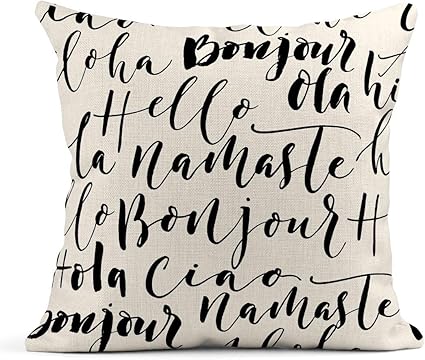 loha Bonjour
Ola hi
Hello
la namaste h
llo Bonjour H
Hola Ciao
Bonjour Namaste